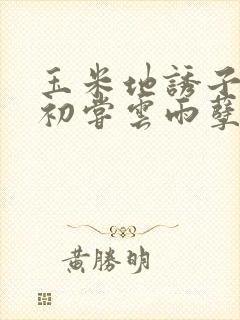 玉米地誘子
初嘗雲雨孽
黃勝明